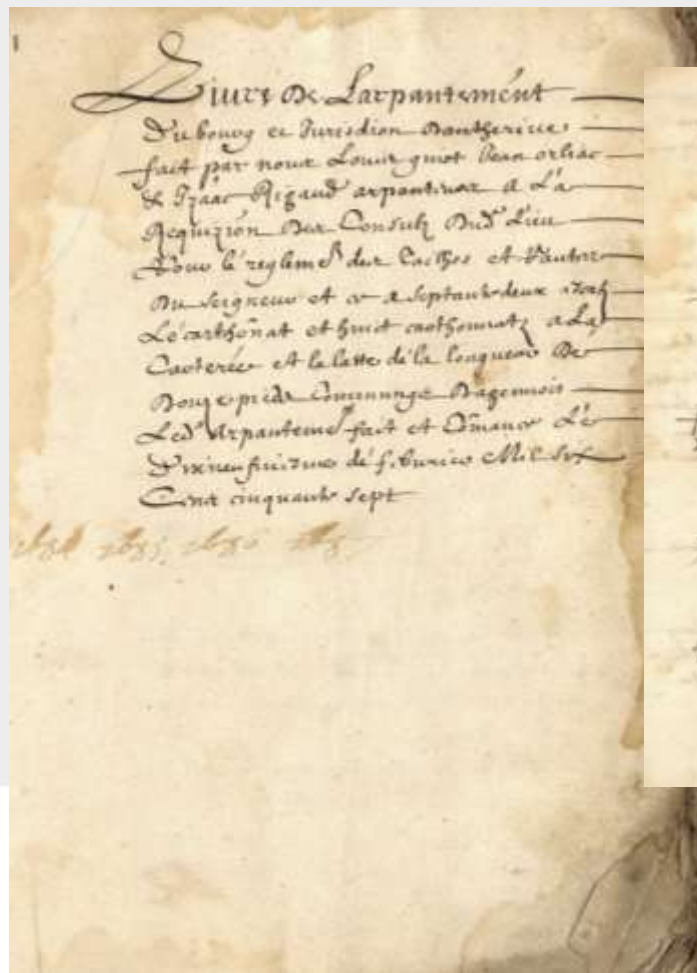 Livre De Larpantement
Du bourg et Jurisdion Dautherive
fait par nous Louis guiot Jean orliac
& Izaac Rigaud arpanteurs a La
Requizion Des Consulz Dud Lieu
le reglemt des Tailhes et
Du seigneur et a septante deux
Le carthonat et huict carthonnatz a La
Carterée et la latte de la longueur De
Douze pieds Dagennois
Led Arpantemet fait et Comancé Le
Dixneufviesme de febvrier Mil Six
Cens cinquante sept